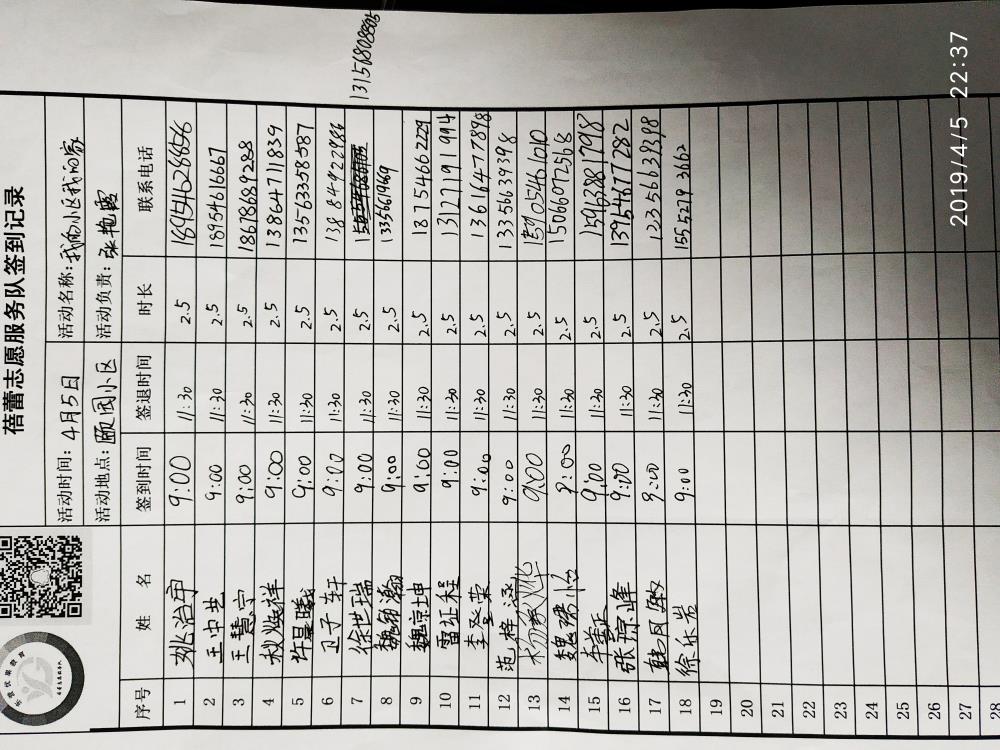 蓓蕾志愿服务队签到记录
活动时间：4月5日 活动名称：我的小区我的家
活动地点：颐园小区 活动负责：张艳霞
序号 姓 名 签到时间 签退时间 时长 联系电话
1 姚治宇 9:00 11:30 2.5 18954628656
2 王中昱 9:00 11:30 2.5 18954616667
3 王慧宁 9:00 11:30 2.5 18678689288
4 秋焕祥 9:00 11:30 2.5 13864711839
5 许昙曦 9:00 11:30 2.5 13563358587
6 卫子轩 9:00 11:30 2.5
7 徐世瑞 9:00 11:30 2.5 13156808805
8 9:00 11:30 2.5 13356619669
9 魏宗坤 9:00 11:30 2.5 18754662229
10 雷征程 9:00 11:30 2.5 13127191994
11 李登荣 9:00 11:30 2.5 13616477898
12 范梓涵 9:00 11:30 2.5 13356639398
13 9:00 11:30 2.5
14 9:00 11:30 2.5 15066072568
15 9:00 11:30 2.5 15962881798
16 张琼峰 9:00 11:30 2.5 13954677282
17 9:00 11:30 2.5
18 徐乐岩 9:00 11:30 2.5 15552793662
19
20
21
22
23
24
25
26
27
28
2019/4/5 22:37